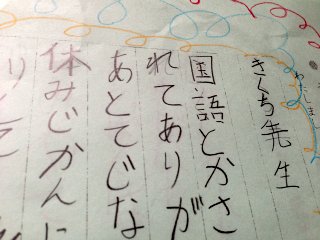 きくち先生
わたしは
国語とかさ
れてありが
あとてじな
休みじかんに